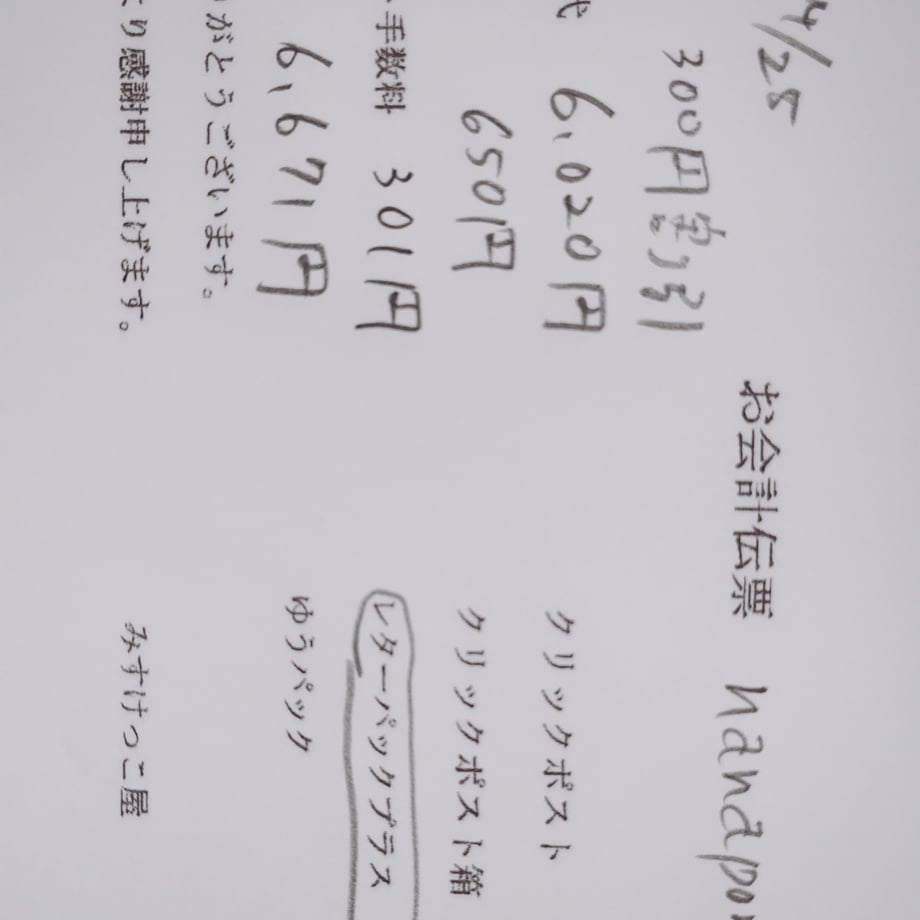 4/25
お会計伝票 nanapo
300円割引
代 6,020円 クリックポスト
650円 クリックポスト箱
手数料 301円 レターパックプラス
6,671円 ゆうパック
がとうございます。
り感謝申し上げます。 みすけっこ屋